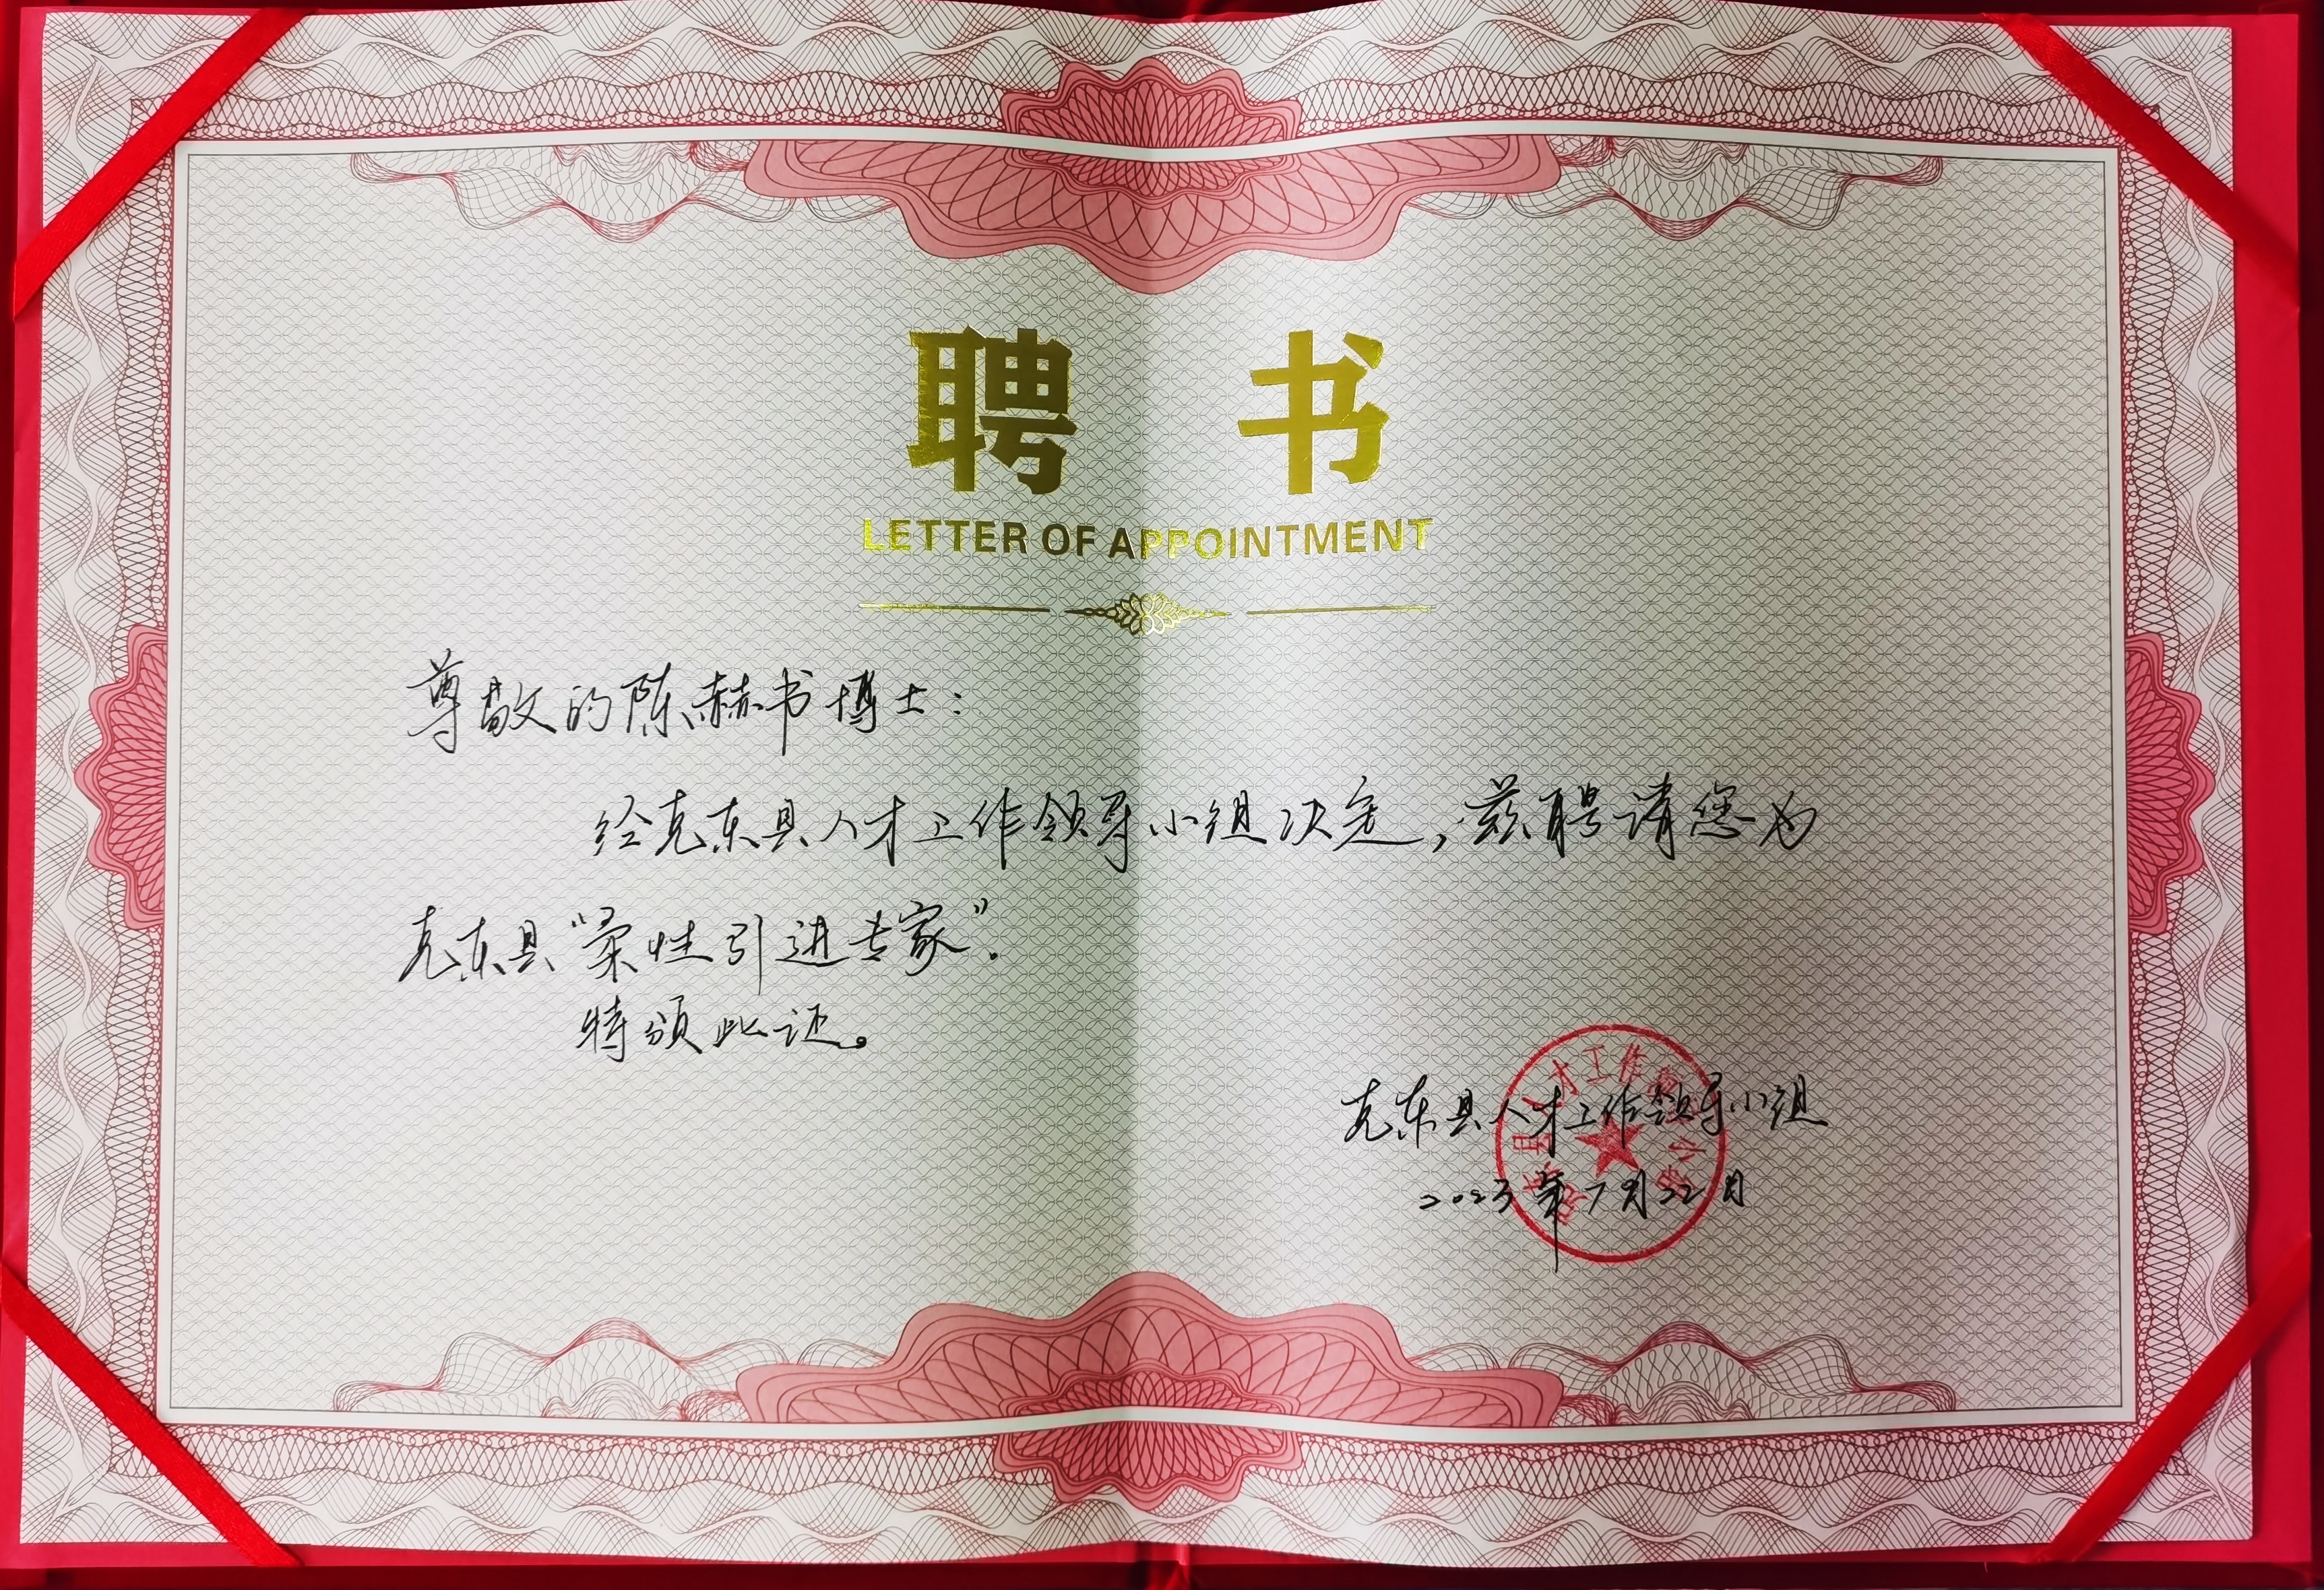 聘书
LETTER OF APPOINTMENT
尊敬的陈赫书博士：
经克东县人才工作领导小组决定，兹聘请您为
克东县“柔性引进专家”．
特颁此证。
克东县人才工作领导小组
2023年7月22日